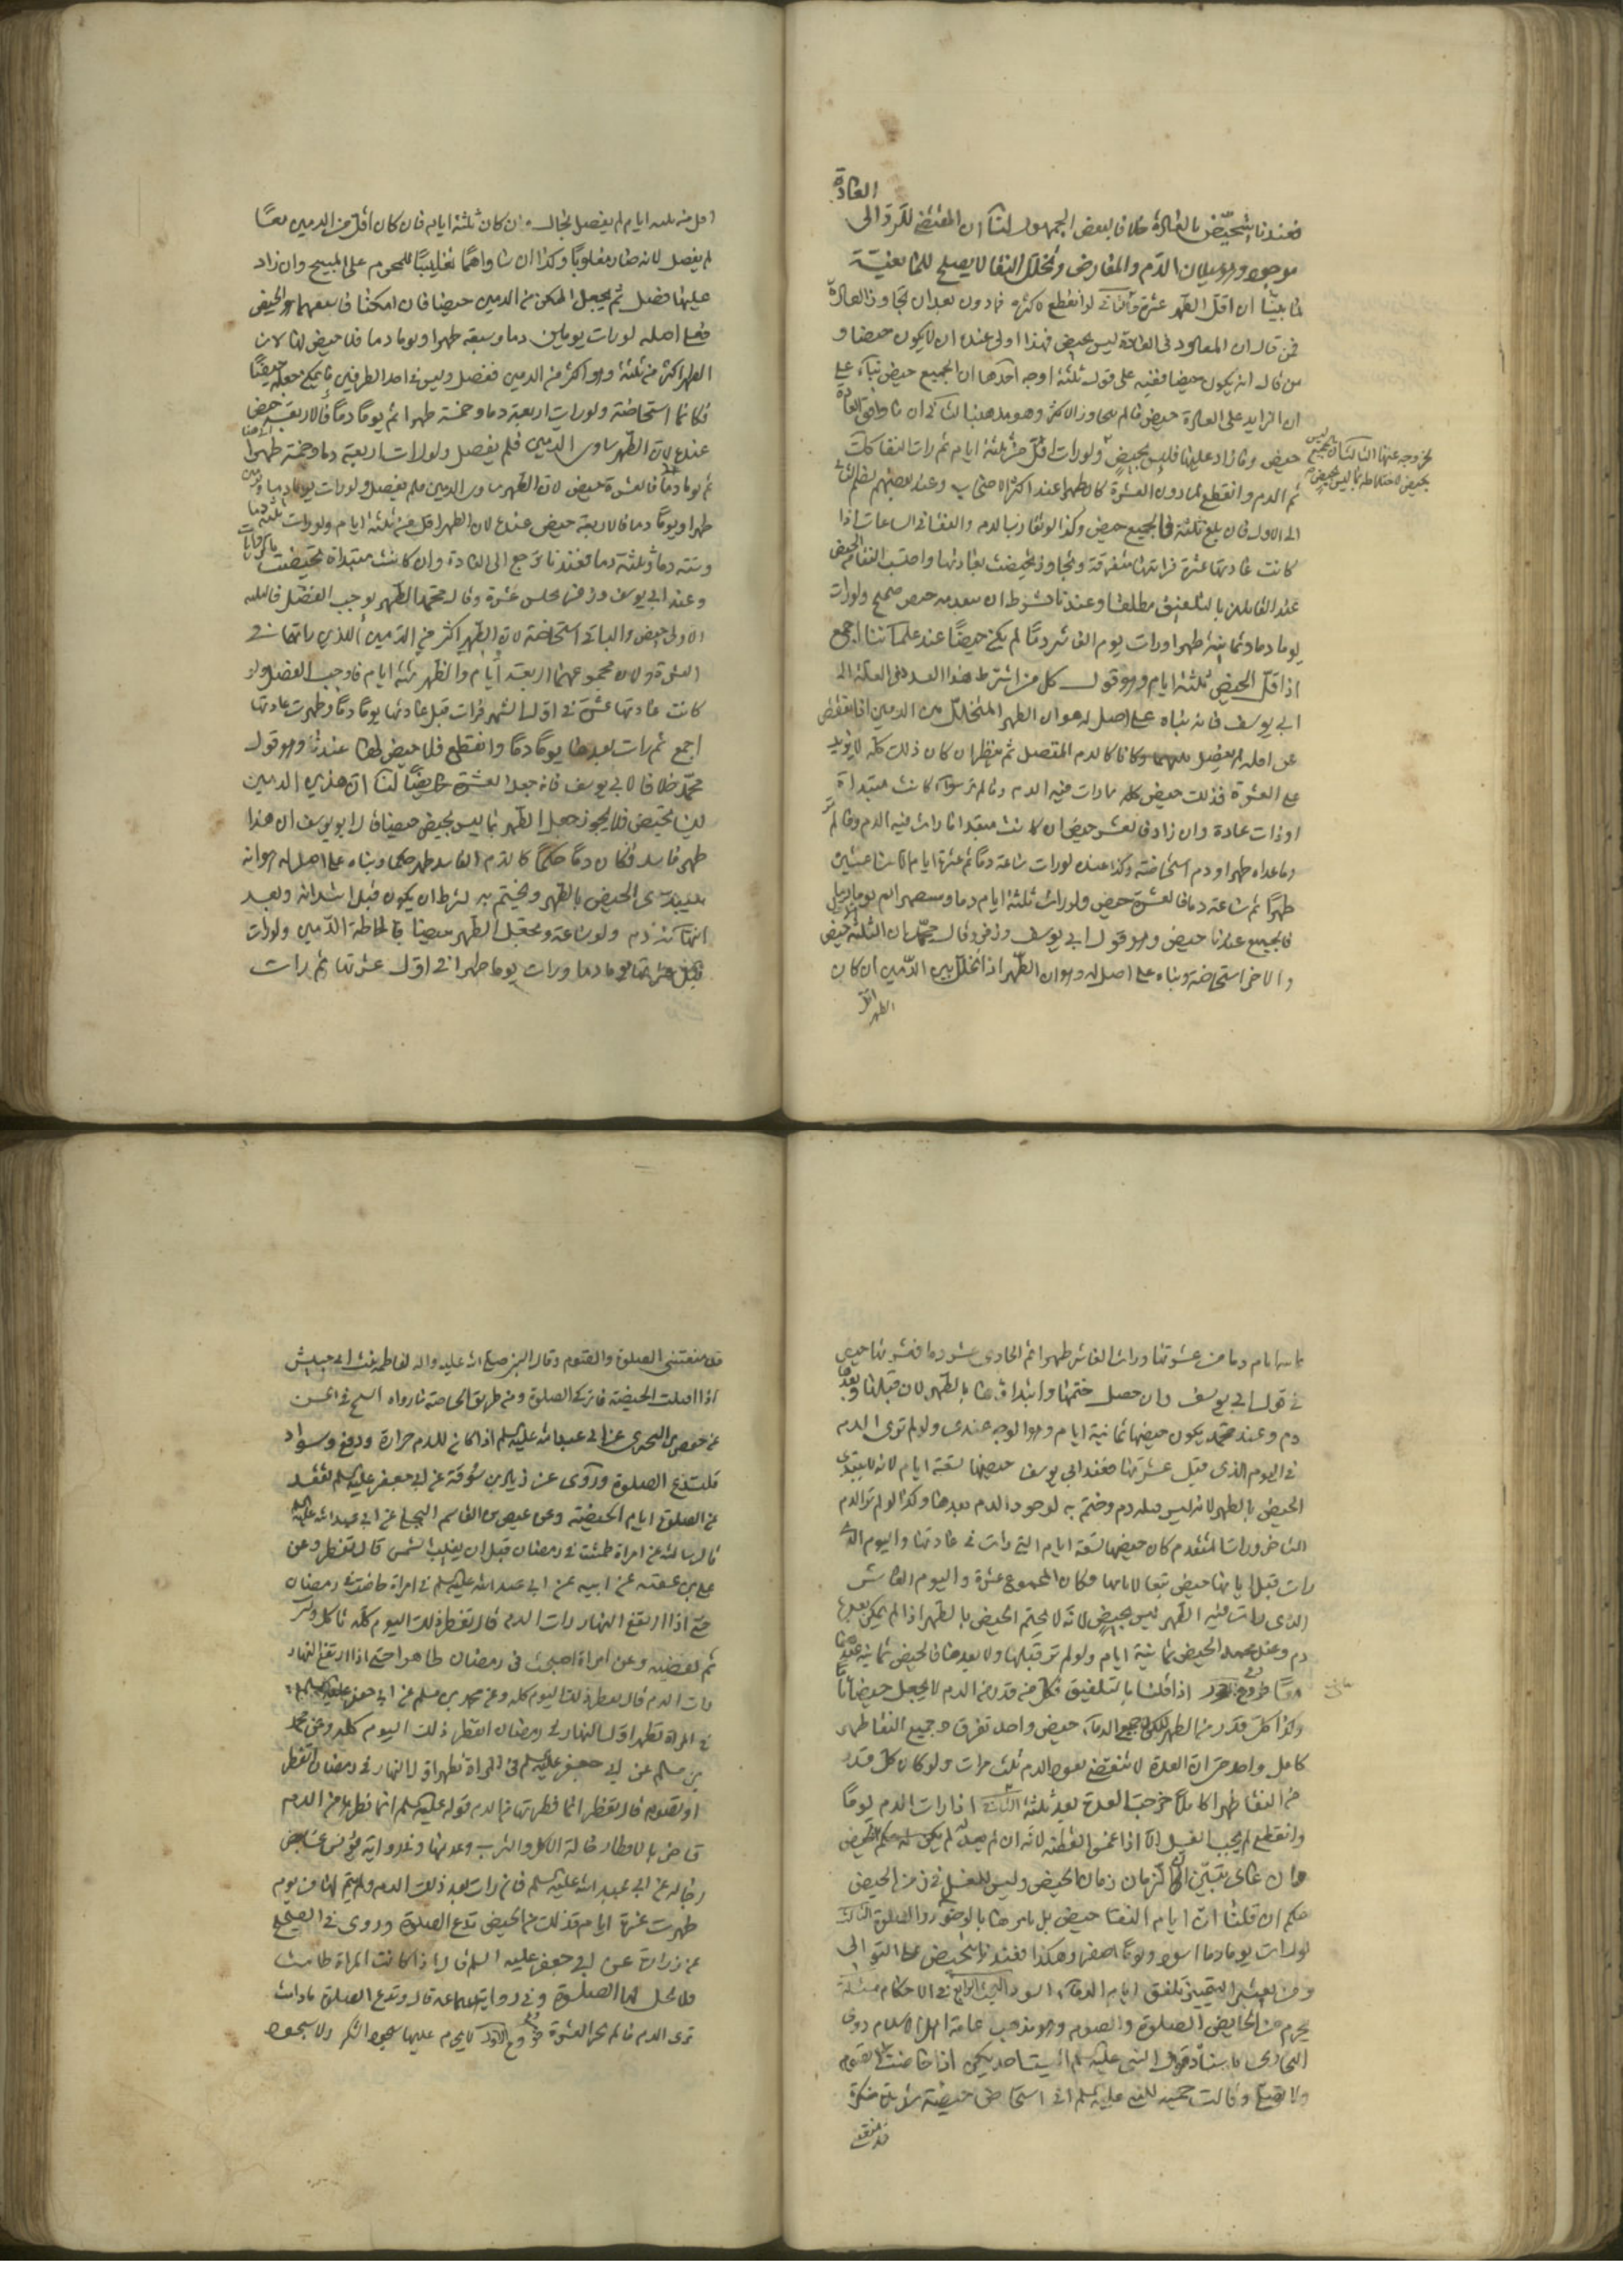 العادة
فعندنا تتحيض بالعادة خلافا لبعض الجمهور لنا ان المقتضى للرد الى
موجود وهو سيلان الدم والمعارض وتخلل النقا لا يصلح للمانعية
لما بينا ان اقل الطهر عشرة
فمن قال ان المعاود في العادة ليس بحيض فهذا اولى عنده ان لا يكون حيضا و
من قال انه يكون حيضا ففيه على قوله ثلثة اوجه احدها ان الجميع حيض بناء على
ان الزايد على العادة حيض ما لم يتجاوز الاكثر وهو مذهبنا الثاني ان ما وافق العادة
حيض وما زاد عليها فليس بحيض ولو رات اقل من ثلثة ايام ثم رات النقا كملت
ثم الدم وانقطع لما دون العشرة كان طهرا عند اكثر الاصحاب وعند بعضهم يضم الثاني
الى الاول فان بلغ ثلثة فالجميع حيض وكذا لو تقارب الدم والنقا في الساعات اذا
كانت عادتها عشرة فراتها متفرقة وتجاوز تحيضت بعادتها واحتسب النقا من الحيض
عند القائلين بالتلفيق مطلقا وعندنا بشرط ان يتعقبه حيض صحيح ولو رات
يوما دما وثمانية طهرا ورات يوم العاشر دما لم يكن حيضا عند علمائنا اجمع
اذ اقل الحيض ثلثة ايام وهو قول كل من اشترط هذا العدد في القلة الا
ابي يوسف فانه بناه على اصل له هو ان الطهر المتخلل بين الدمين اذا نقص
عن اقله لم يفصل بينهما وكانا كالدم المتصل ثم ينظر ان كان ذلك كله لا يزيد
على العشرة فذلك حيض كله ما رات فيه الدم وما لم تر سواء كانت مبتدأة
او ذات عادة وان زاد فالعشر حيض ان كانت مبتدأة
وما عداه طهرا ودم استحاضة وكذا عنده لو رات ساعة دما ثم عشرة ايام الا ساعتين
طهرا ثم ساعة دما فالعشرة حيض ولو رات ثلثة ايام دما
فالجميع عندنا حيض وهو قول ابي يوسف وزفر وقال محمد ان الثلثة حيض
والاخر استحاضة وبناه على اصل له وهو ان الطهر اذا تخلل بين الدمين ان كان
اقل من ثلثة ايام لم يفصل بحال وان كان ثلثة ايام فان كان اقل من الدمين معا
لم يفصل لانه صار مغلوبا وكذا ان ساواهما تغليبا للمحرم على المبيح وان زاد
عليهما فصل ثم يجعل الممكن من الدمين حيضا فان امكنا فاسبقهما هو الحيض
فعلى اصله لو رات يومين دما وسبعة طهرا ويوما دما فلا حيض لها لان
الطهر اكثر من ثلثة وهو اكثر من الدمين ففصل وليس في احد الطرفين ما يمكن جعله حيضا
فكانا استحاضة ولو رات اربعة دما وخمسة طهرا ثم يوما دما فالاربعة حيض
عنده لان الطهر ساوى الدمين فلم يفصل ولو رات اربعة دما وخمسة طهرا
ثم يوما دما فالعشرة حيض لان الطهر ساوى الدمين فلم يفصل ولو رات يوما دما
طهرا ويوما دما فالاربعة حيض عنده لان الطهر اقل من ثلثة ايام ولو رات ثلثة دما
وستة دما وثلثة دما فعندنا ترجع الى العادة وان كانت مبتدأة تحيضت
وعند ابي يوسف وزفر تجلس عشرة وقال محمد الطهر يوجب الفصل فالثلثة
الاولى حيض والباقي استحاضة لان الطهر اكثر من الدمين الذي راتهما في
العشرة ولان مجموعهما اربعة ايام والطهر ستة ايام فاوجب الفصل ولو
كانت عادتها عشرة في اول الشهر فرات قبل عادتها يوما دما وطهرت عادتها
اجمع ثم رات بعدها يوما دما وانقطع فلا حيض لها عندنا وهو قول
محمد خلافا لابي يوسف فانه جعل العشرة حايضا لنا ان هذين الدمين
ليسا بحيض فلا يجوز جعل الطهر بما ليس بحيض حيضا قال ابو يوسف ان هذا
طهر فاسد فكان دما حكما كالدم الفاسد طهر حكما وبناه على اصل له هو انه
يبتدى الحيض بالطهر ويختم به بشرط ان يكون قبل ابتدائه وبعد
انتهائه دم ولو ساعة ويجعل الطهر حيضا باحاطة الدمين ولو رات
قبل عشرتها يوما دما ورات يوما طهرا في اول عشرتها ثم رات
ثمانية ايام دما من عشرتها ورات العاشر طهرا ثم الحادي عشر دما فعشرتها حيض
في قول ابي يوسف وان حصل ختمها وابتداؤها بالطهر لان قبلها وبعدها
دم وعند محمد يكون حيضها ثمانية ايام وهو الوجه عندي ولو لم ترى الدم
في اليوم الذي قبل عشرتها فعند ابي يوسف حيضها تسعة ايام لانه لا يبتدى
الحيض بالطهر لانه ليس قبله دم وختم به لوجود الدم بعدها وكذا لو لم تر الدم
المتاخر ورات المتقدم كان حيضها تسعة ايام التي رات في عادتها واليوم الذي
رات قبل ايامها حيض تبعا لايامها وكان المجموع عشرة واليوم العاشر
الذي رات فيه الطهر ليس بحيض لانه لا يختم الحيض بالطهر اذا لم يكن بعدها
دم وعند محمد الحيض ثمانية ايام ولو لم تر قبلها ولا بعدها فالحيض ثمانية عندهما
معا فروع اذا قلنا بالتلفيق فكل من قدر من الدم لا يجعل حيضا تاما
وكذا كل قدر من الطهر لكن جميع الدماء حيض واحد تفرق وجميع النقا طهر
كامل واحد حتى ان العدة لا تنقضي بعود الدم ثلث مرات ولو كان كل قدر
من النقا طهرا كاملا خرجت العدة بعد ثلثة الثاني اذا رات الدم يوما
وانقطع لم يجب الغسل الا اذا غمس القطنة لانه ان لم يعد لم يكن له حكم الحيض
وان عاد تبين ان الزمان زمان الحيض وليس للغسل في زمن الحيض
حكم ان قلنا ان ايام النقا حيض بل نامرها بالوضوء والصلوة الثالث
لو رات يوما دما اسود ويوما اصفر وهكذا فعندنا تتحيض على التوالى
ومن يعتبر التمييز تلفق ايام الدم الاسود البحث الرابع في الاحكام مسئلة
يحرم على الحايض الصلوة والصوم وهو مذهب عامة اهل الاسلام روى
البخارى باسناده قال النبى عليه السلم اليست احديكن اذا حاضت لا تصوم
ولا تصلي وقالت حمنة للنبي عليه السلم اني استحاض حيضة شديدة منكرة
قد منعتني الصلوة والصوم وقال النبي صلى الله عليه واله لفاطمة بنت ابي حبيش
اذا اقبلت الحيضة فاتركي الصلوة ومن طريق الخاصة ما رواه الشيخ في الحسن
عن حفص بن البختري عن ابي عبد الله عليه السلم اذا كان للدم حرارة ودفع وسواد
فلتدع الصلوة وروى عن زياد بن سوقة عن ابي جعفر عليه السلم تقعد
عن الصلوة ايام الحيضة وعن عيص بن القاسم البجلي عن ابي عبد الله عليه السلم
قال سالته عن امراة طمثت في رمضان قبل ان يغيب الشمس قال تفطر وعن
علي بن عقبة عن ابيه عن ابي عبد الله عليه السلم في امراة حاضت في رمضان
حتى اذا ارتفع النهار رات الدم قال تفطر ذلك اليوم كله تاكل وتشرب
ثم تقضيه وعن امراة اصبحت في رمضان طاهرا حتى اذا ارتفع النهار
رات الدم قال تفطر ذلك اليوم كله وعن محمد بن مسلم عن ابي جعفر عليه السلم
في المراة تطهر اول النهار في رمضان اتفطر ذلك اليوم كله وعن محمد
بن مسلم عن ابي جعفر عليه السلم في المراة تطهر اول النهار في رمضان اتفطر
او تصوم قال تفطر انما فطرتها من الدم قوله عليه السلم انما فطرها من الدم
قاض بالافطار حالة الاكل والشرب وعدمها وفي رواية يونس عن بعض
رجاله عن ابي عبد الله عليه السلم فان رات بعد ذلك الدم ولم يتم لها من يوم
طهرت عشرة ايام فذلك من الحيض تدع الصلوة وروى في الصحيح
عن زرارة عن ابي جعفر عليه السلم قال اذا كانت المراة طامثا
فلا تحل لها الصلوة وفي رواية سماعة قال وتدع الصلوة ما دامت
ترى الدم ما لم تجز العشرة فروع الاول لا يحرم عليها سجود الشكر ولا سجود